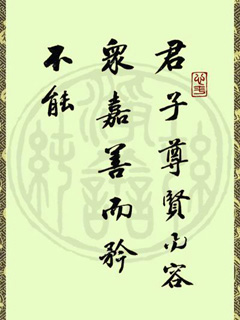 君子尊賢而容
衆嘉善而矜
不能